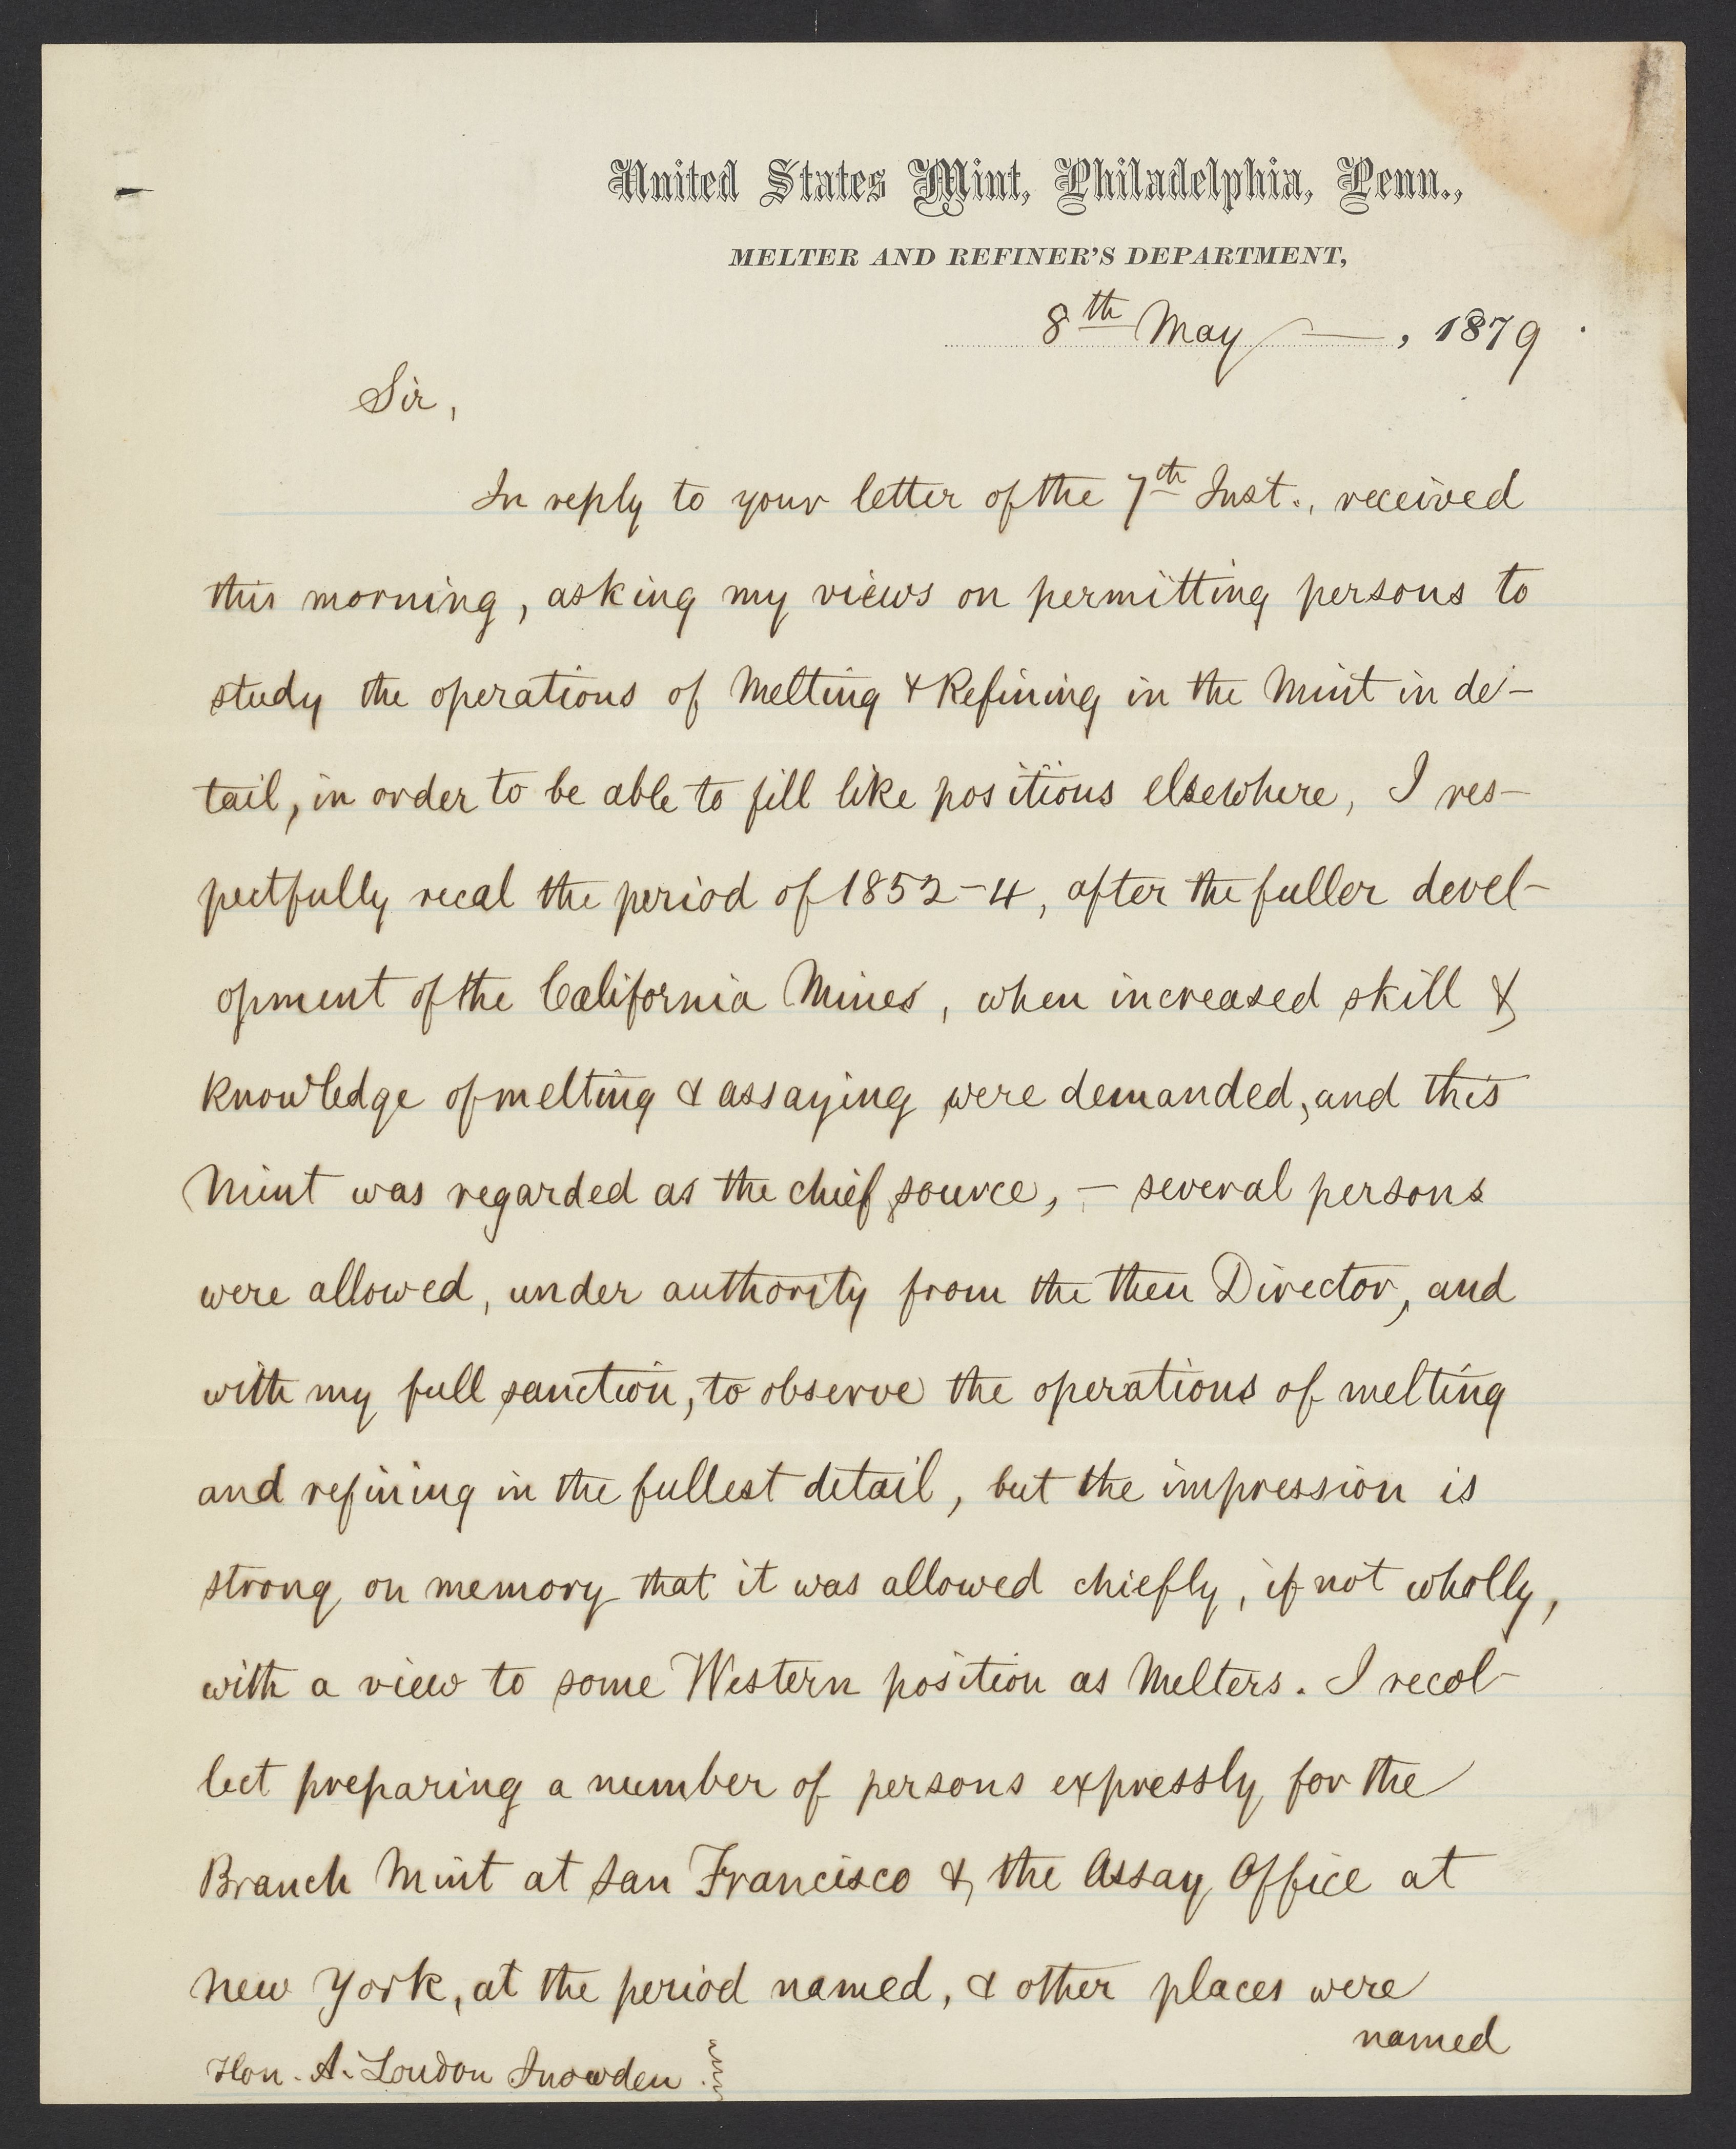 United States Mint, Philadelphia, Penn.,
MELTER AND REFINER'S DEPARTMENT,
8th May, 1879.
Sir,
In reply to your letter of the 7th Inst., received
this morning, asking my views on permitting persons to
study the operations of Melting & Refining in the Mint in de-
tail, in order to be able to fill like positions elsewhere, I res-
pectfully recal the period of 1852-4, after the fuller devel-
opment of the California Mines, when increased skill &
knowledge of melting & assaying were demanded, and this
Mint was regarded as the chief source, - several persons
were allowed, under authority from the then Director, and
with my full sanction, to observe the operations of melting
and refining in the fullest detail, but the impression is
strong on memory that it was allowed chiefly, if not wholly,
with a view to some Western position as Melters. I recol-
lect preparing a number of persons expressly for the
Branch Mint at San Francisco & the Assay Office at
New York, at the period named, & other places were
named
Hon. A. Loudon Snowden